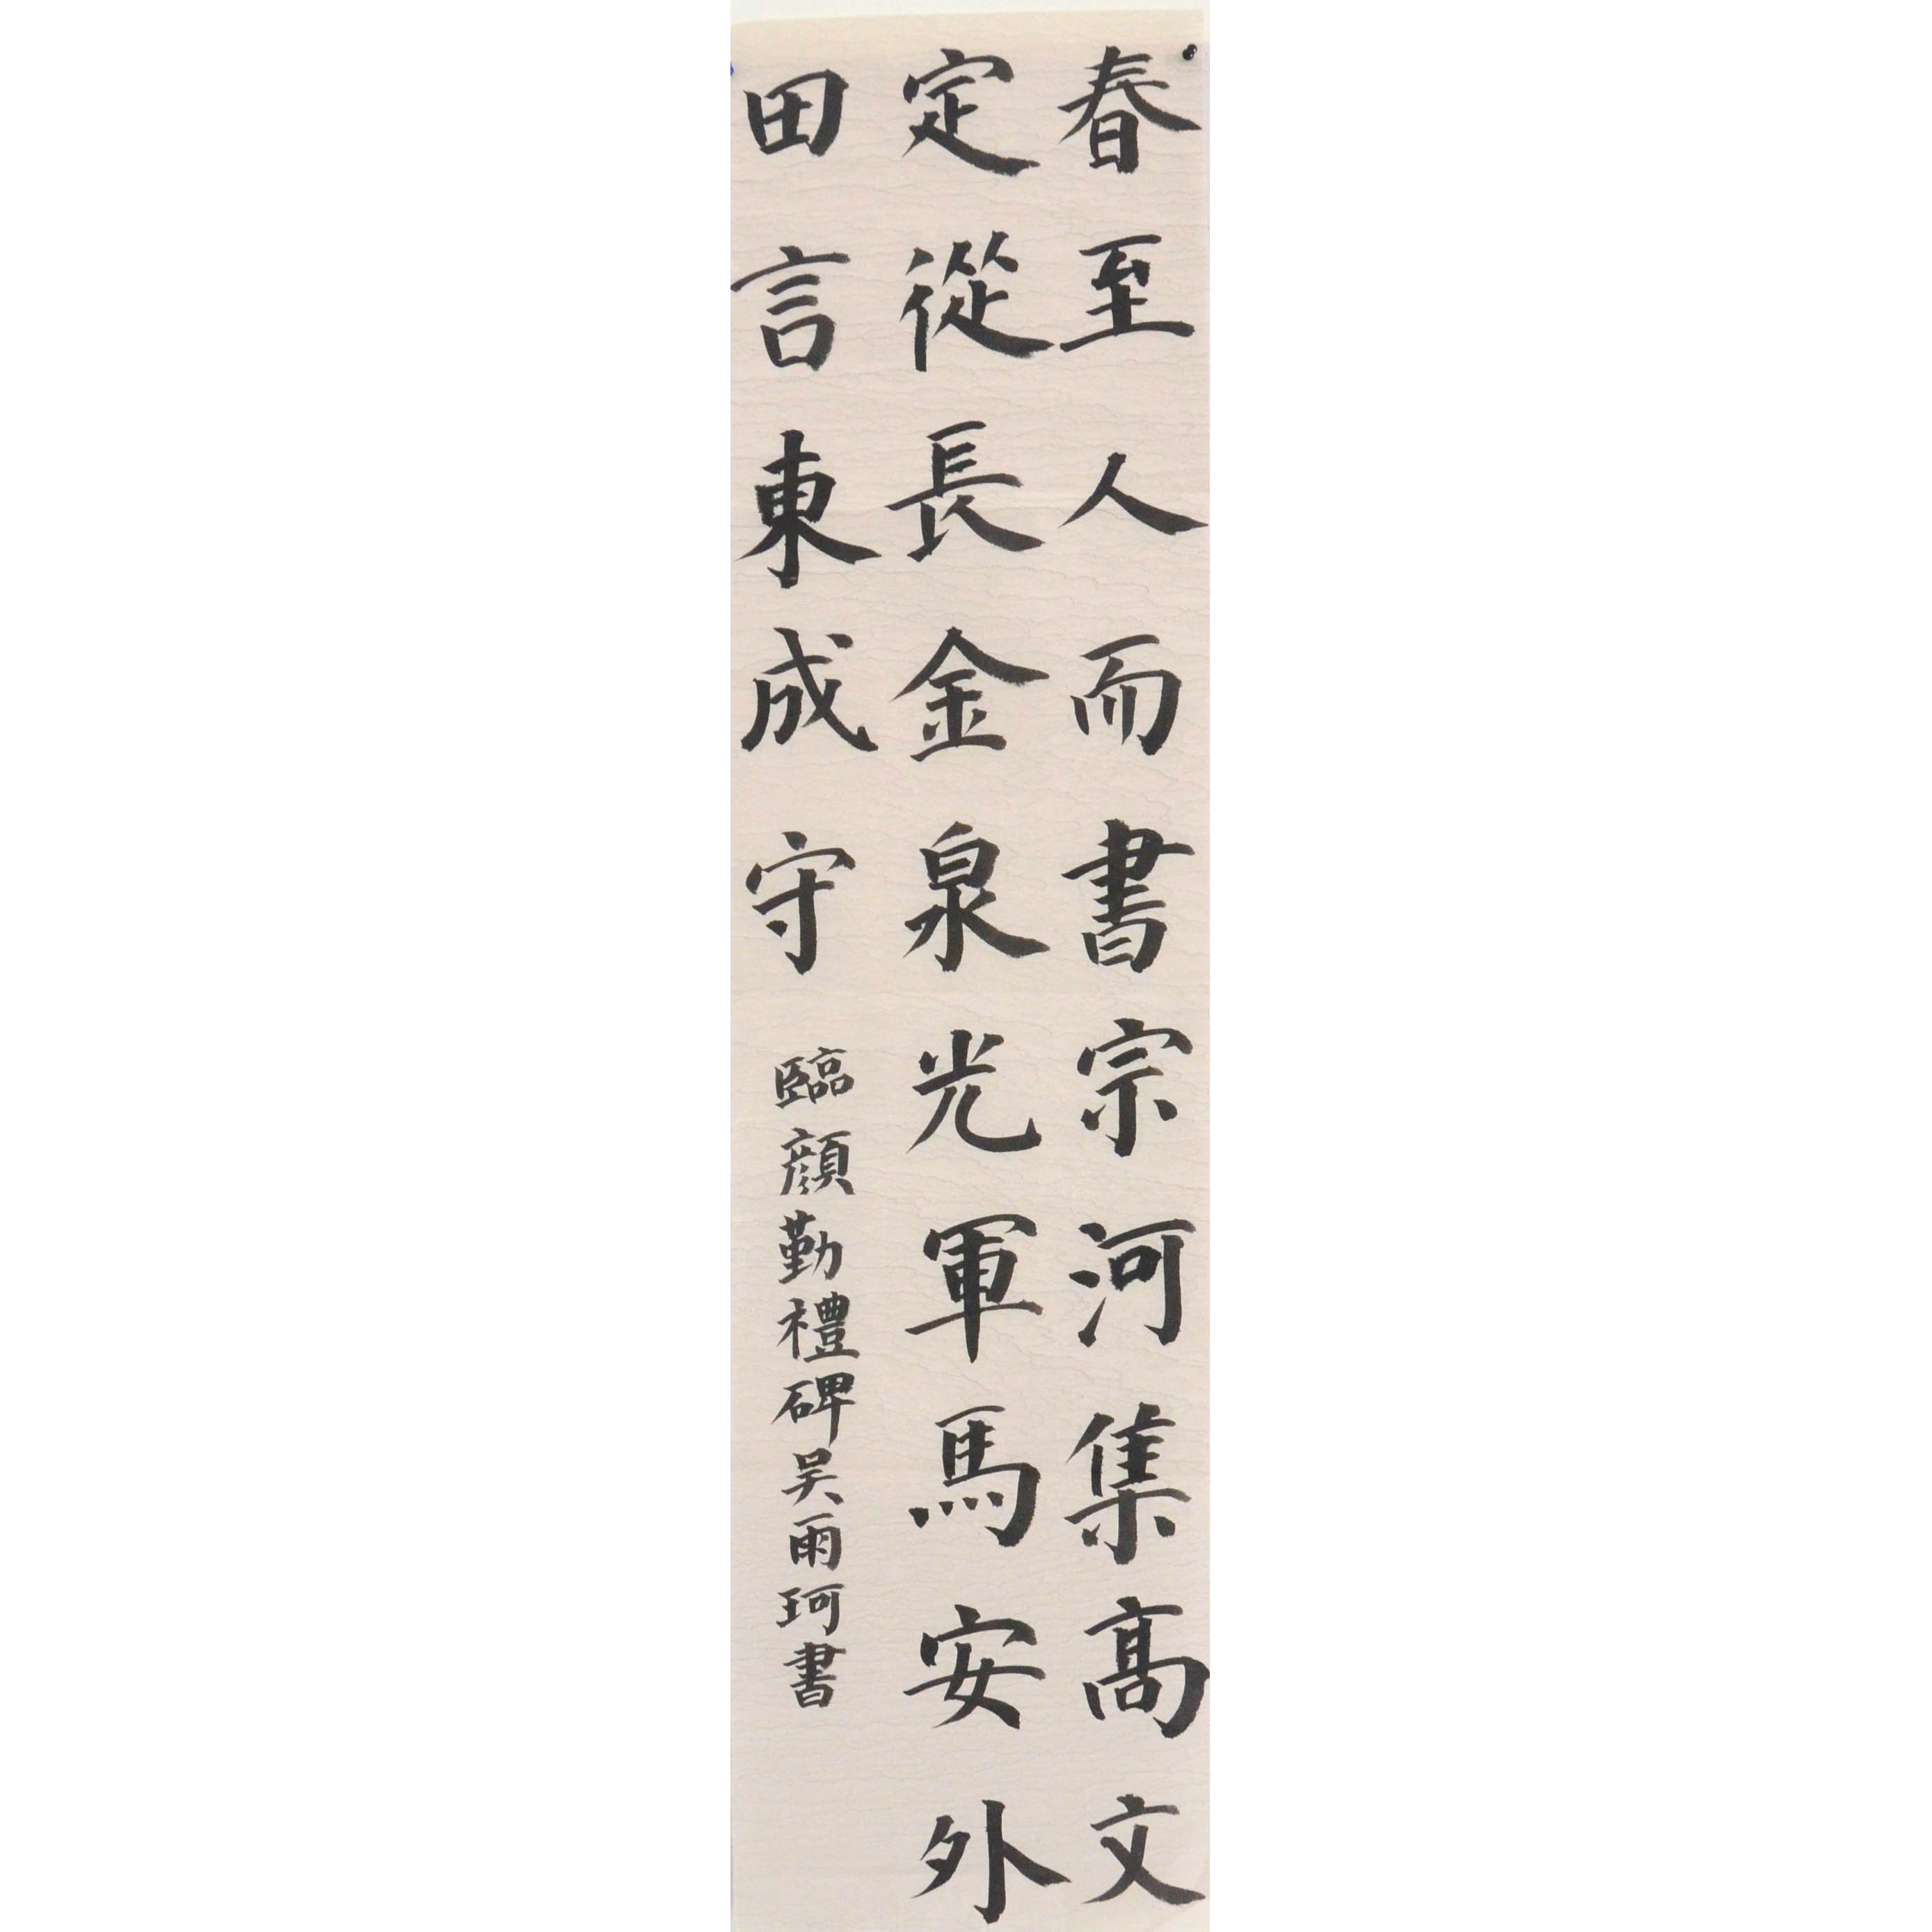 春至人而書宗河集高文
定從長金泉光軍馬安外
田言東成守
臨顔勤禮碑吴雨珂書